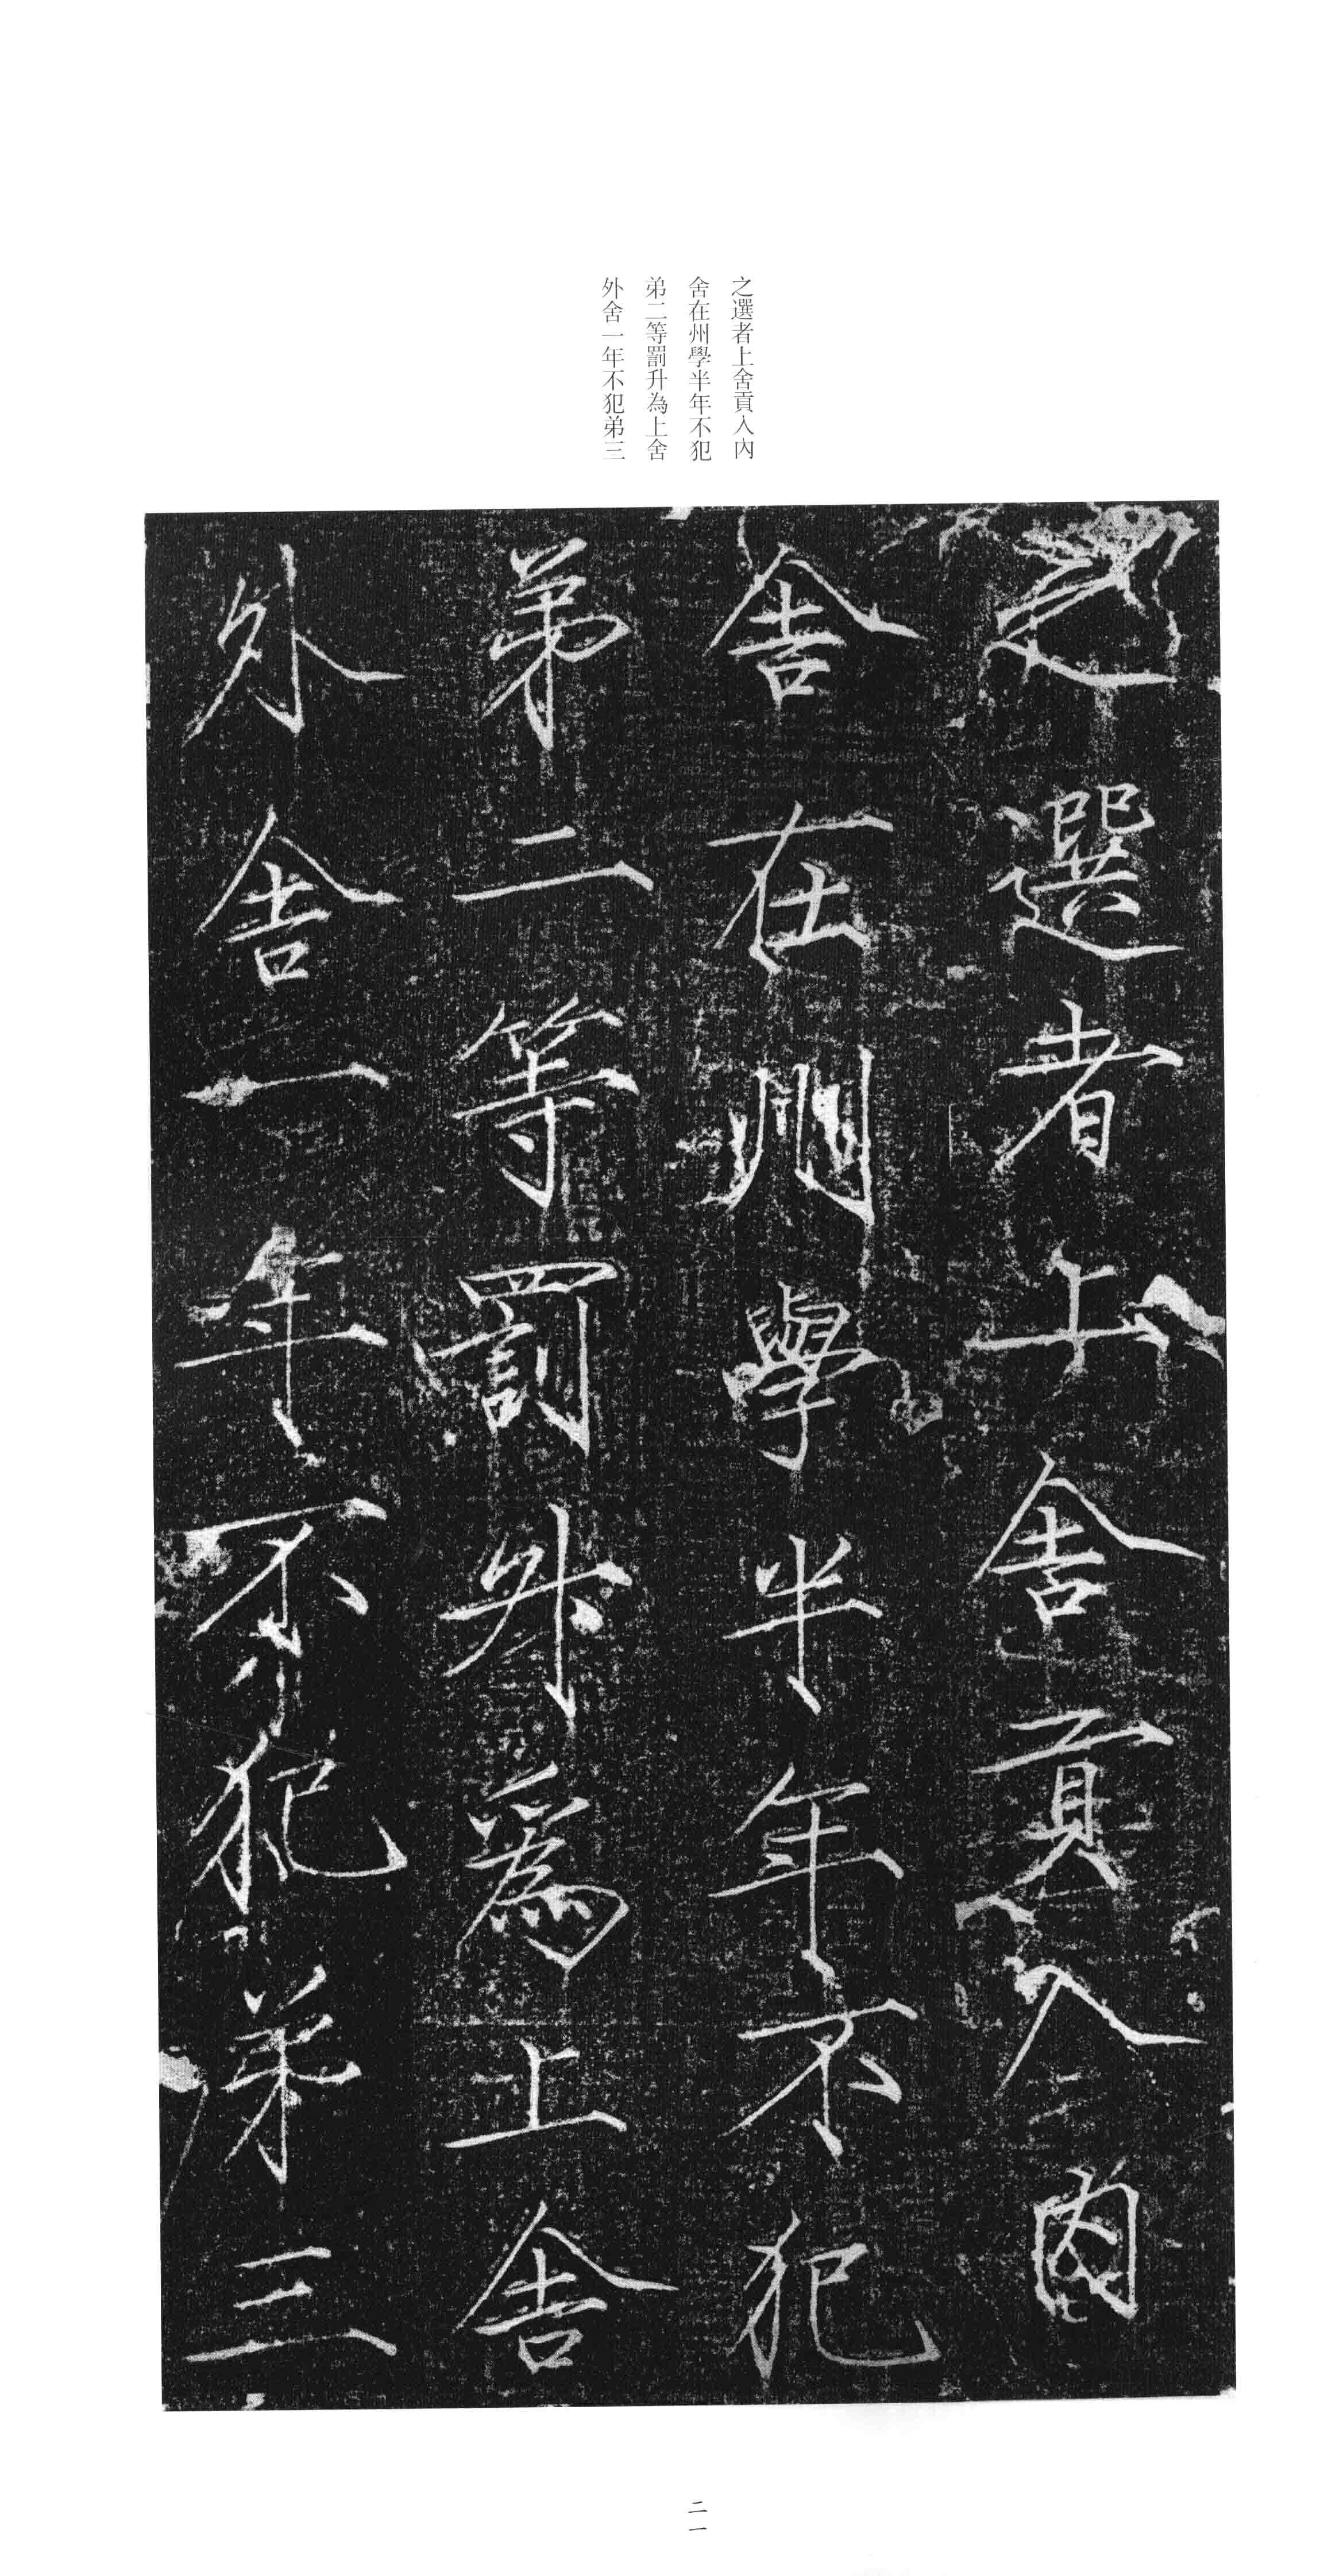 之選者上舍貢入內
舍在州學半年不犯
弟二等罰升為上舍
外舍一年不犯弟三
之選者上舍貢入內
舍在州學半年不犯
弟二等罰升爲上舍
外舍一年不犯弟三
二一